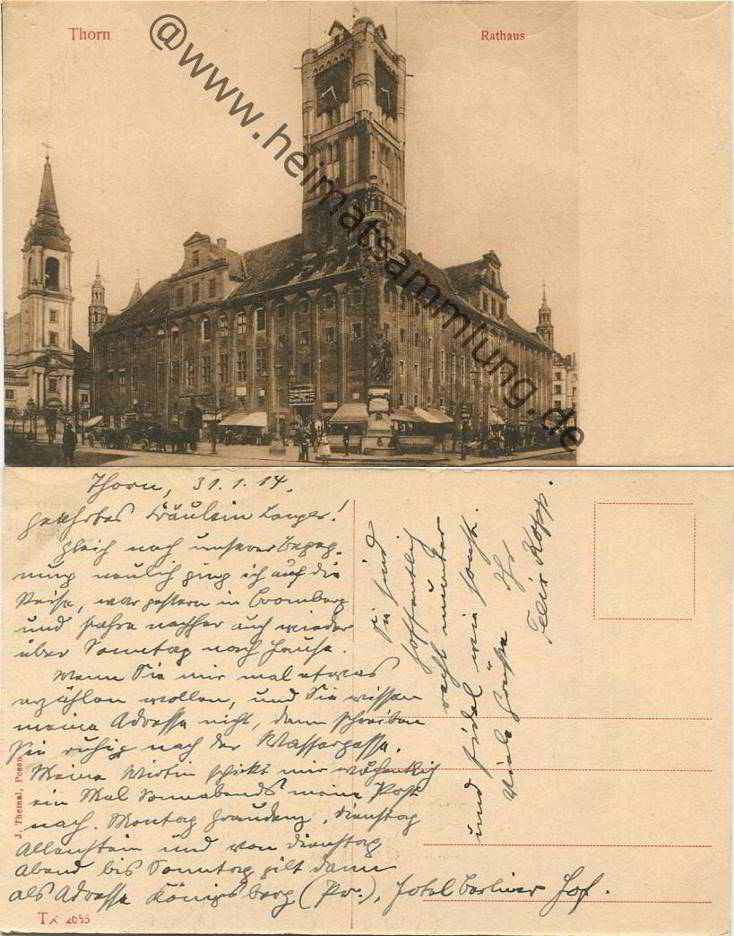 Thorn
Rathaus
@www.heimatsammlung.de
Thorn, 31.1.14.
Geehrtes Fräulein Langer!
Gleich nach unserer Begeg-
nung neulich ging ich auf die
Reise, war gestern in Bromberg
und fahre nachher auch wieder
über Sonntag nach Hause.
Wenn Sie mir mal etwas
erzählen wollen, und Sie wissen
meine Adresse nicht, dann schreiben
Sie ruhig nach der Wassergasse.
Meine Wirtin schickt mir wöchentlich
ein Mal Sonnabends meine Post
nach. Montag Graudenz, Dienstag
Allenstein und von Dienstag
Abend bis Sonntag gilt dann
als Adresse Königsberg (Pr.), Hotel Berliner Hof.
Sie sind
hoffentlich
recht munter
und fidel wie sonst.
Viele Grüße Ihr
Felix Kopp.
J. Themal, Posen
TK 2055